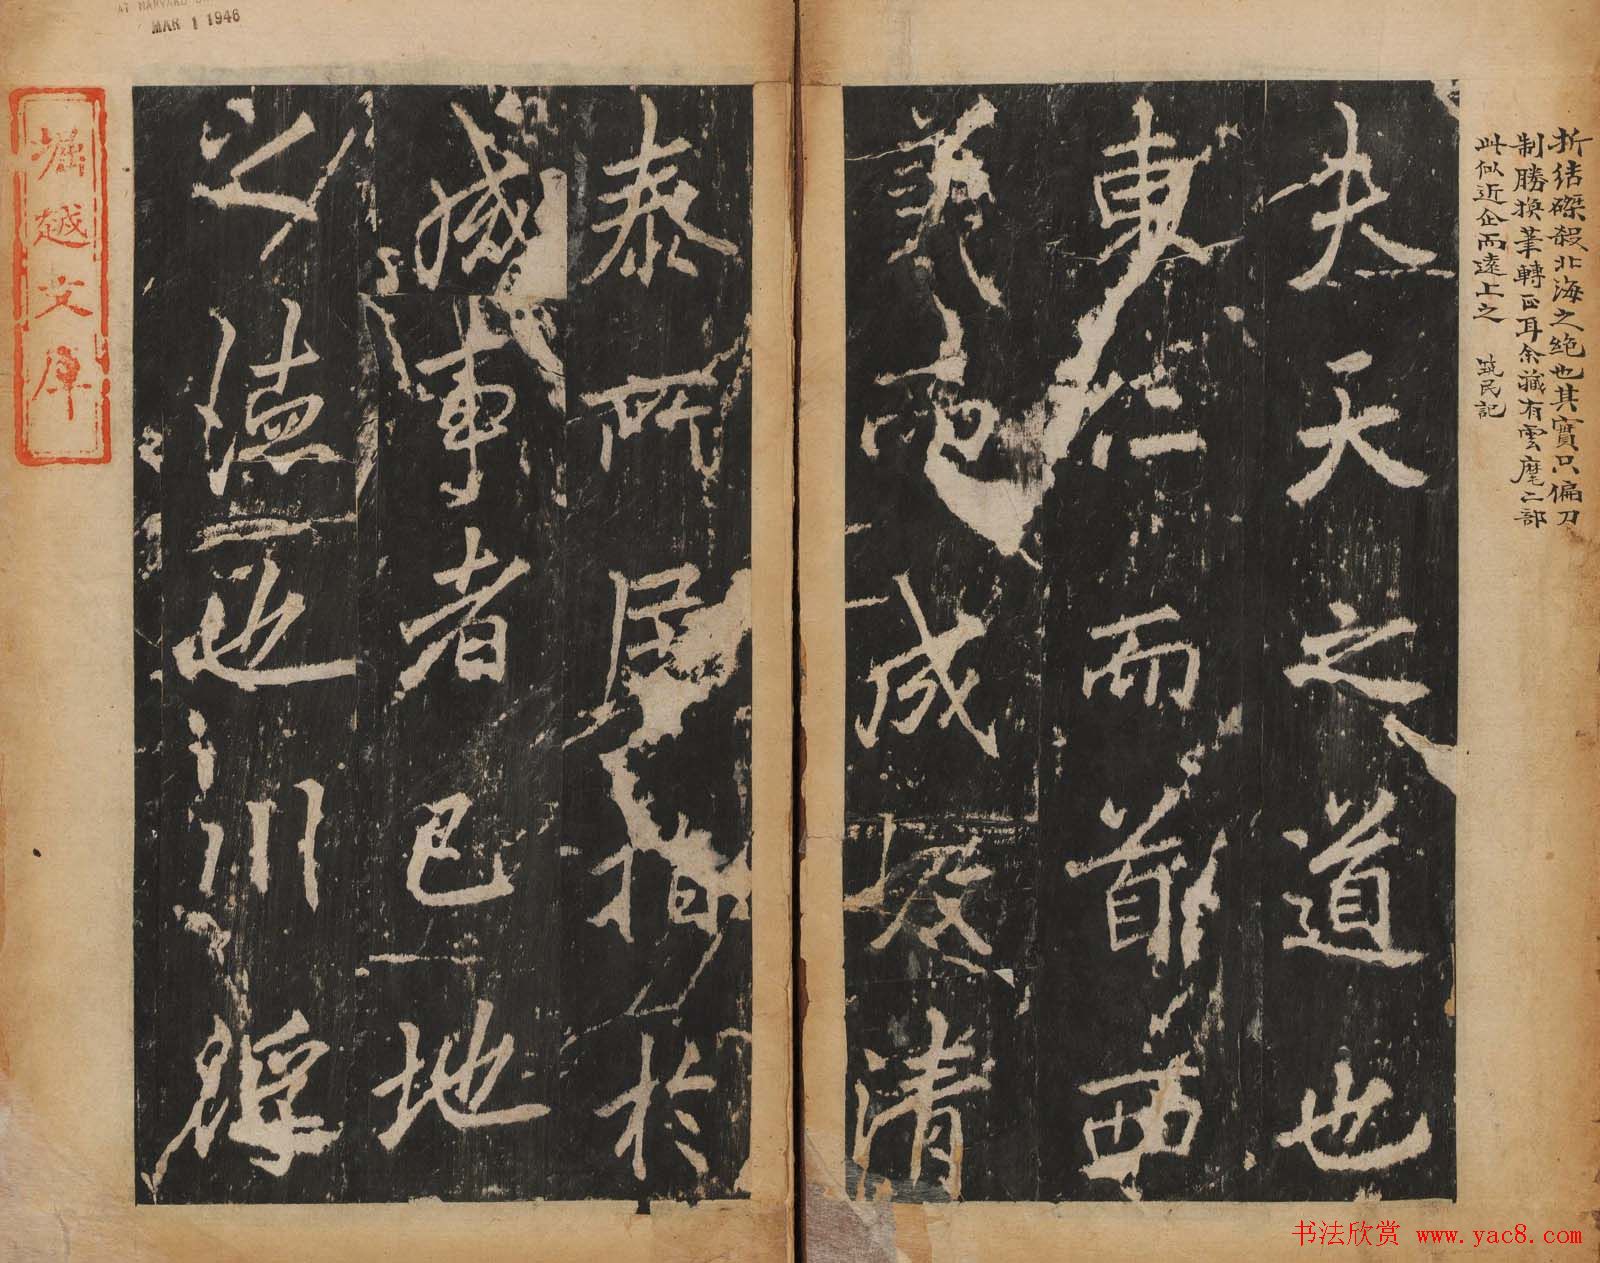 AT HARVARD
MAR 1 1946
折結磔殺北海之絶也其實只偏刀
制勝換筆轉正耳余藏有雲麾二部
此似近企而遠上之 民記
夫天之道也
東仁而首西
義而成故清
泰所居指於
事者已地
之德也川浮
堀越文庫
书法欣赏 www.yac8.com